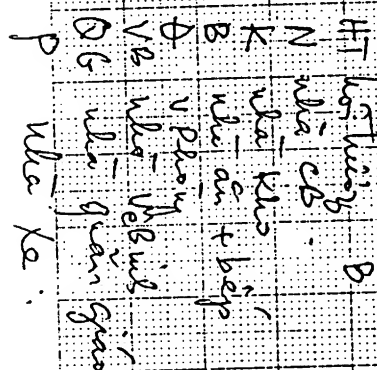 HT hội trường B
N nhà CB.
K nhà kho
B nhà ăn + bếp
Đ V phòng
VB nhà Vệ sinh
QG nhà quản giáo
P nhà xe.